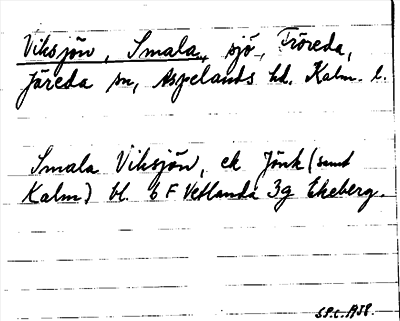 Viksjön, Smala, sjö, Fröreda,
Järeda sn, Aspelands hd. Kalm. l.
Smala Viksjön, ek Jönk (samt
Kalm) bl. 6 F Vetlanda 3g Ekeberg.
1958.